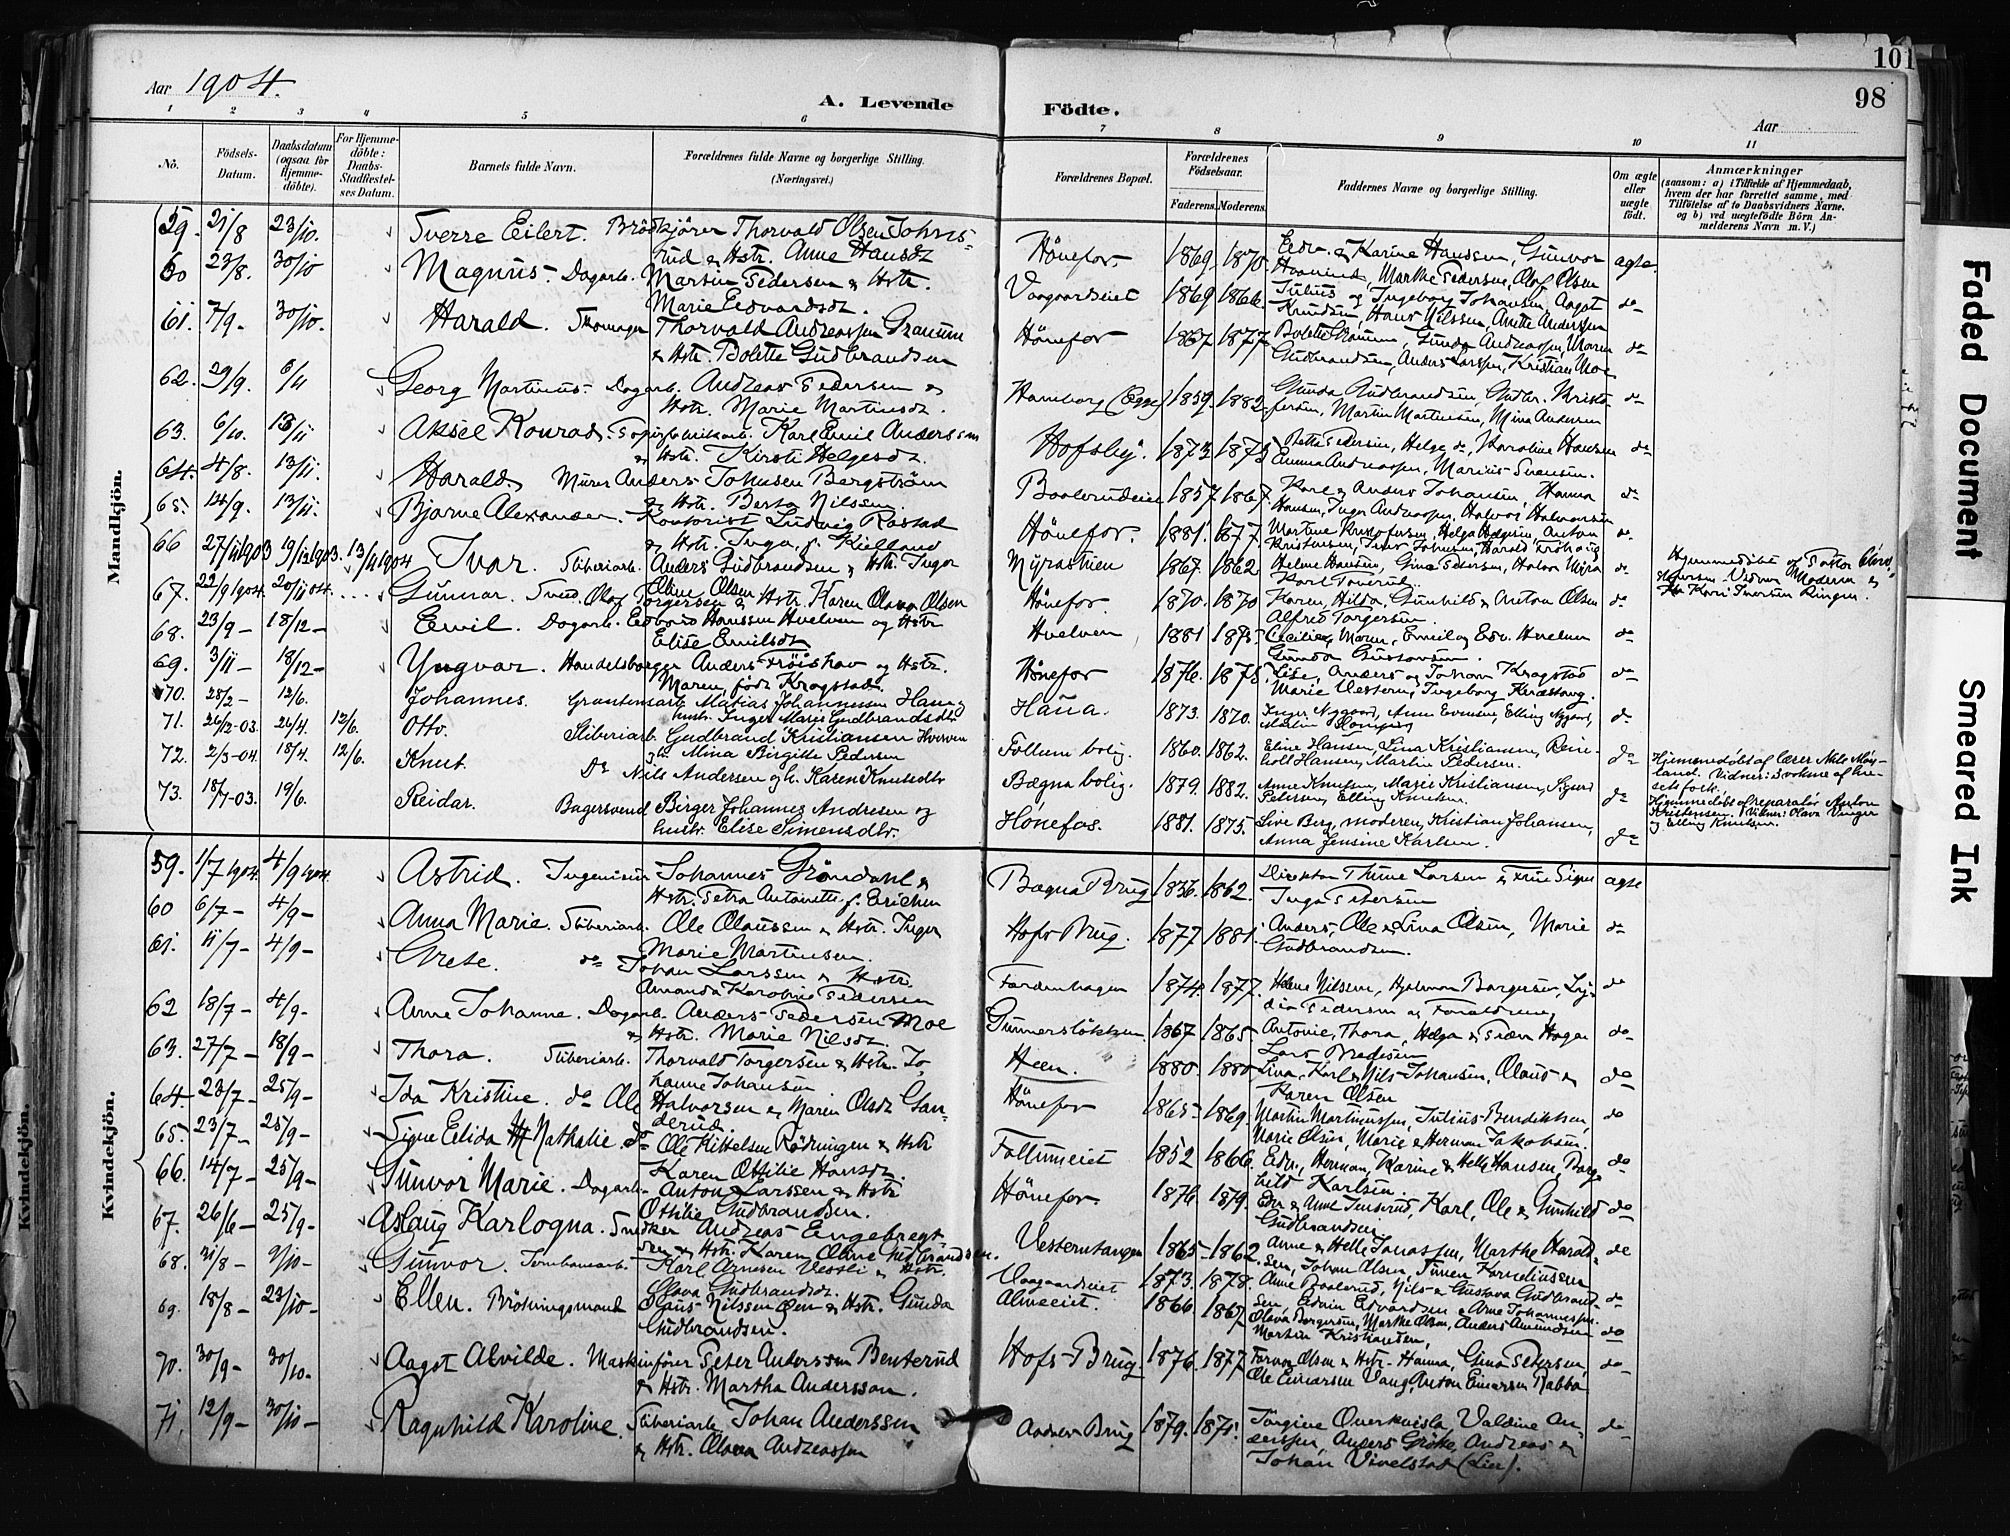 Aar 1904.
A. Levende Födte.
101
98
Aar
1 2 3 4 5 6 7 8 9 10 11
No.
Födsels-Datum.
Daabsdatum (ogsaa for Hjemme-döbte).
For Hjemme-döbte: Daabs-Stadfestel-ses Datum.
Barnets fulde Navn.
Forældrenes fulde Navne og borgerlige Stilling. (Næringsvei.)
Forældrenes Bopæl.
Forældrenes Födselsaar.
Faderens. Moderens.
Faddernes Navne og borgerlige Stilling.
Om ægte eller uægte födt.
Anmærkninger
(saasom: a) i Tilfælde af Hjemmedaab, hvem der har forrettet samme, med Tilföielse af to Daabsvidners Navne. og b) ved uægtefödte Börn An-melderens Navn m. V.)
Mandkjön.
59. 21/8 23/10. Sverre Eilert. Brödkjörer Thorvald Olsen Johns-
rud & Hstr. Anne Hansdt Hönefos. 1869 1870 Edv. & Karine Hansen, Gunvor ægte.
Marthe Pedersen, Olof Olsen
60 23/8. 30/10 Magnus. Dagarb. Martin Pedersen & Hstr.
Marie Edvardsdt. Vaagaardseiet 1869 1866. Julius og Ingeborg Johansen, Aagot do
Knudsen, Hans Nilssen, Anette Anderssen
61. 7/9. 30/10. Harald. Skomager Thorvald Andreassen Granum
& Hstr. Bolette Gudbrandsen Hönefos 1867 1877 Bolette Granum, Gunda Andreassen, Maren do
Gudbrandsen, Anders Larssen, Kristian Moe
62. 29/9. 6/11 Georg Martinus. Dagarb. Andreas Pedersen &
Hstr. Marie Martinsdt. 1859. 1882 Gunda Gudbrandsen, Gudbr. Kristo- do
fersen, Martin Martinsen, Mina Andersen
63. 6/10. 13/11 Aksel Konrad. Karl Emil Anderssen
& Hstr. Kirsti Helgesdt. Hofsby. 1873 1873 Helge do, Karoline Hansen do
Emma Andreassen, Marius Svensen.
64. 4/8. 13/11. Harald. Murer Anders Johnsen Bergström
& Hstr. Berta Nilssen 1857 1867 Karl & Anders Johansen, Hanna do
Hansen, Inger Andreassen, Halvor Halvorsen
65. 14/9. 13/11. Bjarne Alexander. Kontorist Ludvig Rostad
& Hstr. Inga, f. Kielland Hönefos. 1881. 1877. Martine Kristofersen, Helga Helgesen, Anton do.
Kristensen, Harald Fröhaug
66 27/11 1903 19/12 1903. 13/11 1904 Ivar. Sliberiarb. Anders Gudbrandsen & Hstr. Inger
Eline Olsen Myrastuen 1867. 1862 Helene Hansen, Gina Pedersen, Halvor Myra do
Karl Taverud. Hjemmedöbt af
67. 22/9 1904. 20/11 04. Gunnar. Smed. Olaf Torgersen & Hstr. Karen Olava Olsen Hönefos. 1870. 1870 Karen, Hilda, Gunhild & Anton Olsen do
Alfred Torgersen.
68. 23/9 - 18/12 - Emil. Dagarb. Edvard Hanssen Hvelven og Hstr
Elise Emilsdt Hvelven 1881 1875. Maren, Emil og Edv. Hvelven do
Gunda Gustavsen.
69. 3/11 - 18/12 - Yngvar. Handelsborger Anders Fröishov og Hstr.
Maren, födt Kragstad. Hönefos 1876. 1878. Lise, Anders og Johan Kragstad do
Marie Vestern, Ingeborg
70. 28/2 - 12/6. Johannes. Matias Johannesen Haug
hustr. Inger Marie Gudbrandsdtr 1873. 1870. Inger Nygaard, Anne Evensen, Elling Nygaard, do
71. 26/12-03. 26/4. 12/6. Otto. Sliberiarb. Gudbrand Kristiansen Hverven
g h. Mina Birgitte Pedersen Follum bolig. 1860. 1862. Eline Hansen, Lina Kristiansen, Rein-
hold Hansen, Martin Pedersen. do Hjemmedöbt af lærer Nils Möy-
land. Vidner: voksne af hu-
sets folk.
72. 2/3-04. 18/4. 12/6. Knut. Do Nils Andersen og h. Karen Knutsdtr Bægna bolig. 1879. 1882. Anne Knutsen, Marie Kristiansen, Sigurd
Petersen, Elling Knutsen. do Hjemmedöbt af reparatör Anton
Kristensen. Vidner: Olava Vinger
og Elling Knutsen.
73. 18/7-03. 19/6. Reidar. Bagersvend Birger Johannes Andresen og
hustr. Elise Simensdtr. Hönefos. 1881. 1875. Live Berg, moderen, Kristian Johansen,
Anna Jensine Karlsen. do
Kvindekjön.
Kvindekjön.
59. 1/7 1904. 4/9 1904. Astrid. Ingeniör Johannes Gröndahl &
Hstr. Petra Antoinette f. Erichsen Bægna Brug 1836. 1862. Direktör Thune Larsen & Frue Signe ægte
Inga Petersen
60 6/7 - 4/9 - Anna Marie. Sliberiarb. Ole Olaussen & Hstr. Inger
Marie Martinsen. Hofs Brug. 1877 1881. Anders, Ole & Lina Olsen, Marie do
Gudbrandsen.
61. 11/7 - 4/9 - Grete. do Johan Larssen & Hstr.
Amanda Karoline Pedersen 1874. 1877. Helene Nilsen, Hjalmar Borgersen, Ly- do
dia Pedersen og Forældrene
62 18/7 - 4/9 - Anne Johanne. Dagarb. Anders Pedersen Moe
& Hstr. Marie Nilsdt. 1867 1865 Antonie, Thora, Helga & Peder Hagen do
Lars Bredesen
63. 27/7 - 18/9 - Thora. Sliberiarb. Thorvald Torgersen & Hstr. Jo-
hanne Johansen Heen. 1880. 1880 Lina, Karl & Nils Johansen, Olaus & do
Karen Olsen
64. 23/7 - 25/9 - Ida Kristine. do Ole Halvorsen & Maren Olsdt Gan-
derud. Hönefos 1865 1869. Martin Martinussen, Julius Bendiksen, do
Marie Olsen, Marie & Herman Jakobsen.
65. 23/7 - 25/9 - Signe Elida Nathalie. do Ole Kittelsen Rödningen & Hstr
Karen Ottilie Hansdt. Follumeiet 1852 1866. Edv., Herman, Karine & Helle Hansen, Borg- do
hild Karlsen.
66. 14/7 - 25/9 - Gunvor Marie. Dagarb. Anton Larssen & Hstr
Ottilie Gudbrandsen. Hönefos 1876 1879. Karl, Ole & Gunhild do
Gudbrandsen
67. 26/6 - 25/9 - Aslaug Karlogna. Snedker Andreas Engebregt-
sen & Hstr. Karen Oline Gudbrandsen. Vesterntangen 1865 1862. Anne & Helle Jonassen, Marthe Harald- do
sen, Johan Olsen, Simen Korneliussen
68. 31/8 - 9/10 - Gunvor. Jernbanearb. Karl Arnesen Vesli & Hstr.
Olava Gudbrandsdt. Vaagaardseiet 1873. 1878. Anne Boolerud, Nils & Gustava Gudbrand- do
sen, Edvin Edvardsen & Arne Johannessen.
69. 18/8 - 23/10 - Ellen. Brötningsmand Olaus Nilssen Öen & Hstr. Gunda
Gudbrandsen. Almeeiet. 1866 1867 Olava Borgersen, Marthe Olsen, Anders Amundsen do
Martin Kristiansen.
70. 30/9 - 30/10. Aagot Alvilde. Maskinförer Peter Anderssen Benterud
& Hstr. Martha Anderssen. Hofs Brug. 1876. 1877 Olsen & Hstr. Hanna, Gina Petersen, do
Ole Einarsen Vang, Anton Einarsen Rabba
71. 12/9 - 30/10 - Ragnhild Karoline. Sliberiarb. Johan Anderssen
& Hstr. Olava Andreassen Brug 1879. 1871. Jörgine Overkvisla, Valdine An- do
derssen, Anders Gröthe, Andreas &
Johan Vivelstad (Lier).
Faded Document
Smeared Ink